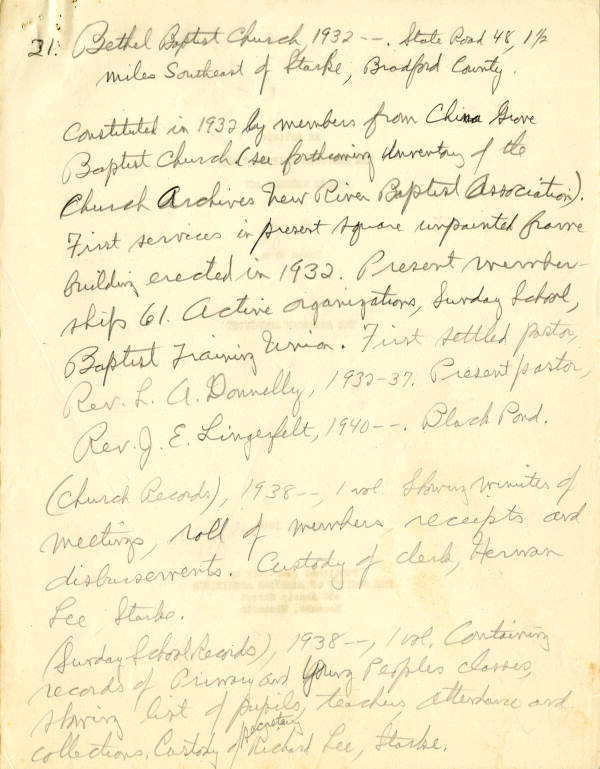 21. Bethel Baptist Church, 1932--. State Road 48, 1½
miles Southeast of Starke, Bradford County.
Constituted in 1932 by members from China Grove
Baptist Church (see forthcoming Inventory of the
Church Archives New River Baptist Association).
First services in present square unpainted frame
building erected in 1932. Present member-
ship 61. Active organizations, Sunday School,
Baptist Training Union. First settled pastor,
Rev. L. A. Donnelly, 1932-37. Present pastor,
Rev. J. E. Lingerfelt, 1940--. Black Pond.
(Church Records), 1938--, 1 vol. Showing minutes of
meetings, roll of members, receipts and
disbursements. Custody of clerk, Herman
Lee, Starke.
(Sunday School Records), 1938--, 1 vol. Containing
records of Primary and Young Peoples classes,
showing list of pupils, teachers, attendance and
collections. Custody of secretary Richard Lee, Starke.